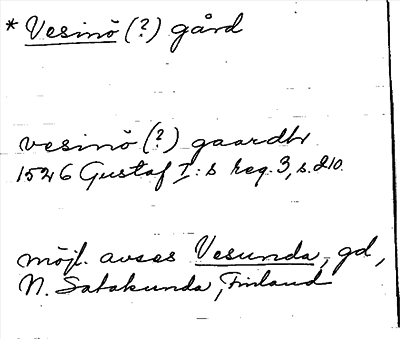 * Vesinö (?) gård
vesinö (?) gaardh
1526 Gustaf I:s reg. 3, s. 210.
möjl. avses Vesunda, gd,
N. Satakunda, Finland